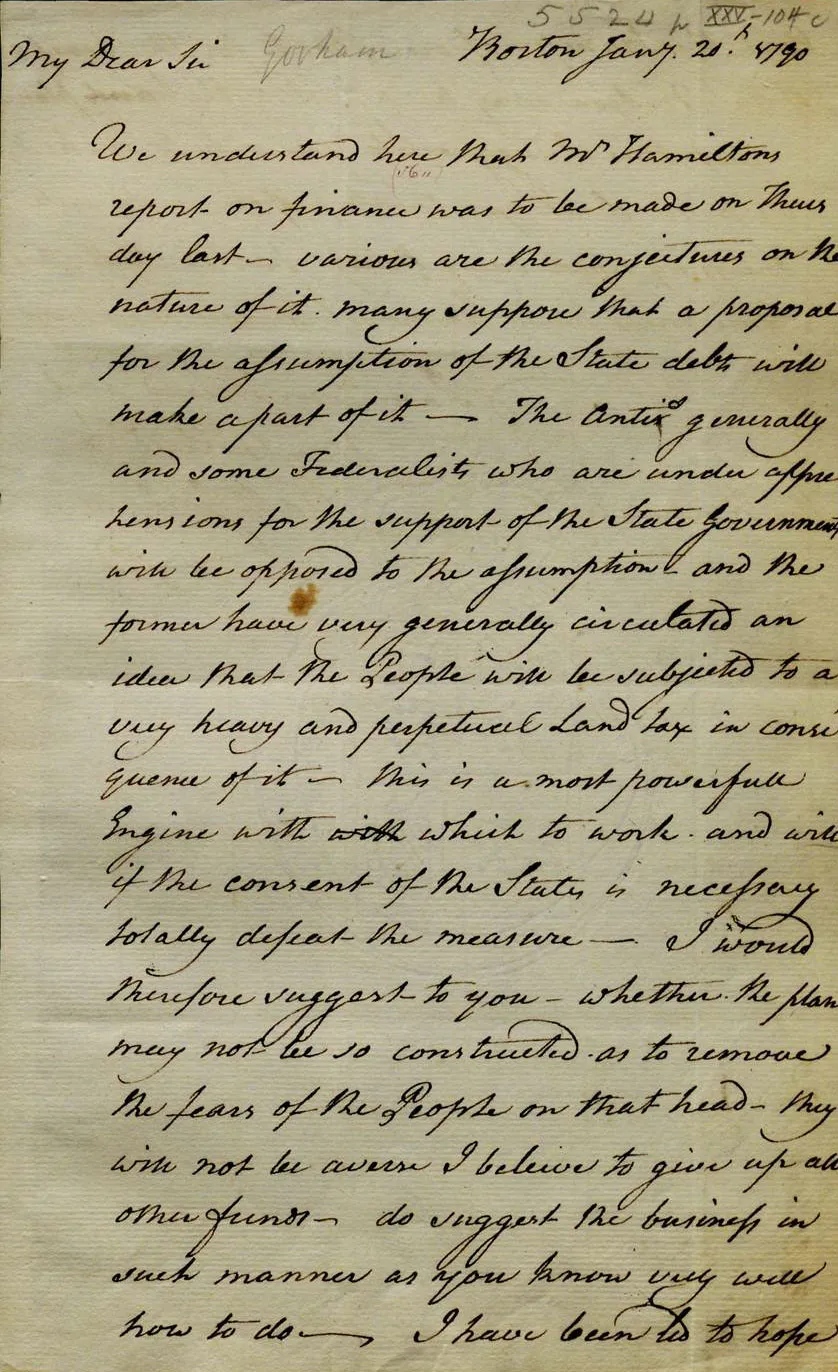 5524 XXV-104c
My Dear Sir Gorham Boston Jany. 20.th 1790
We understand here that Mr Hamiltons
report on finance was to be made on Thurs
day last — various are the conjectures on the
nature of it. many suppose that a proposal
for the assumption of the State debts will
make a part of it — The Antis generally
and some Federalists who are under appre
hensions for the support of the State Government
will be opposed to the assumption - and the
former have very generally circulated an
idea that the People will be subjected to a
very heavy and perpetual Land tax in conse
quence of it — this is a most powerfull
Engine with with which to work. and will
if the consent of the States is necessary
totally defeat the measure — I would
therefore suggest to you - whether the plan
may not be so constructed as to remove
the fears of the People on that head - they
will not be averse I beleive to give up all
other funds — do suggest the business in
such manner as you know very well
how to do — I have been led to hope